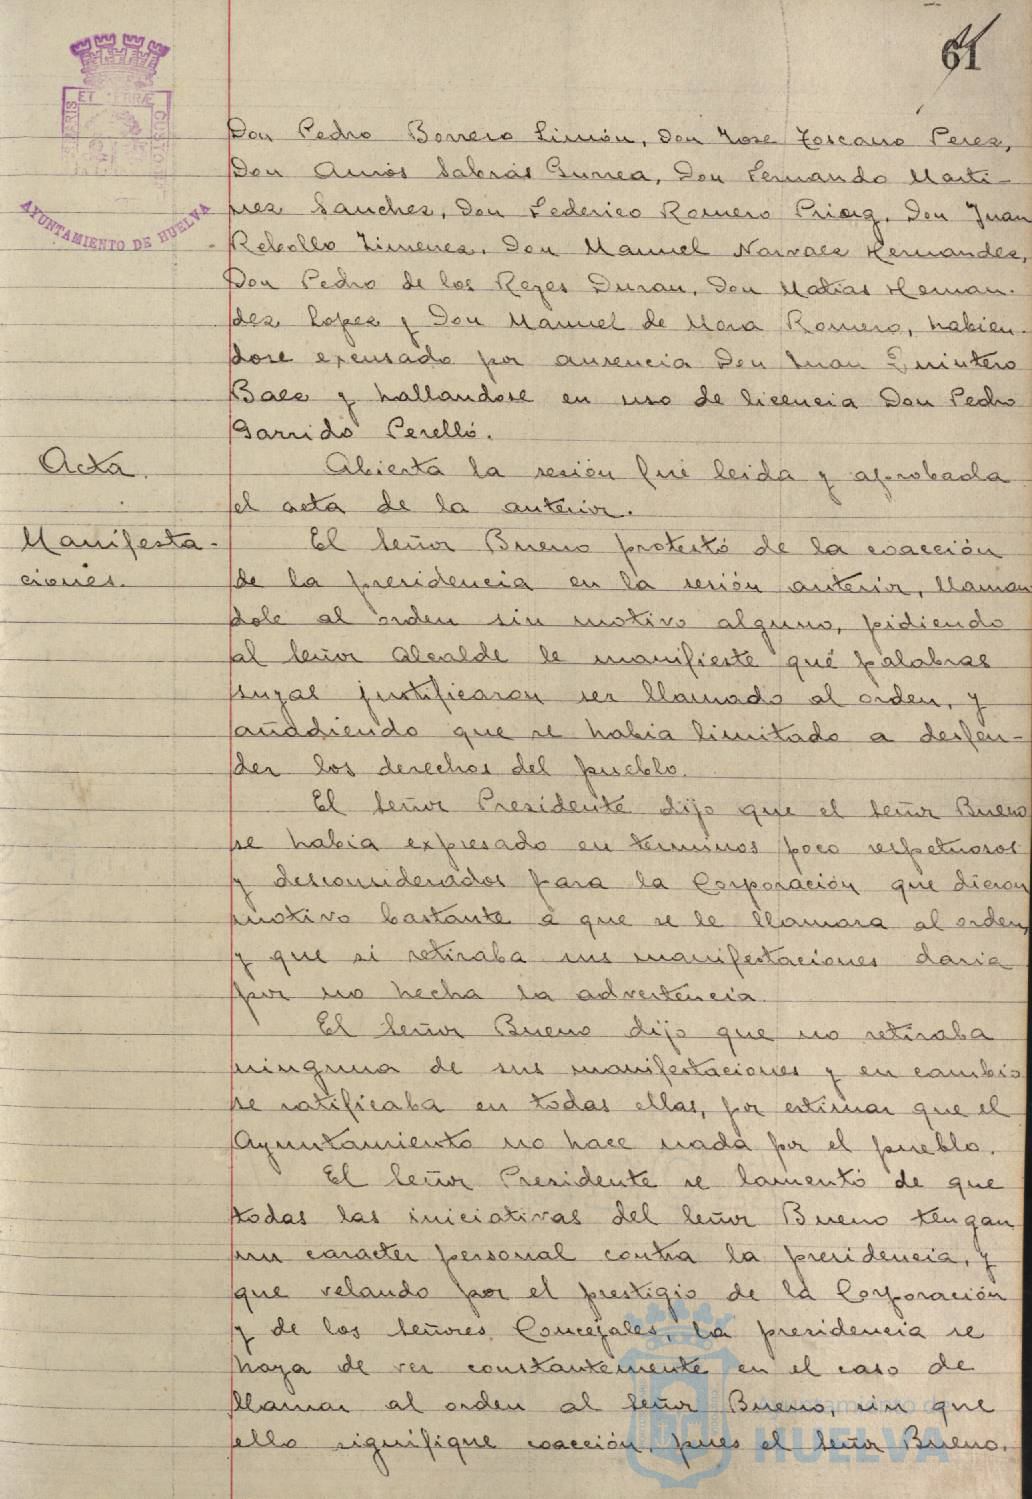 61
AYUNTAMIENTO DE HUELVA
Don Pedro Borrero Limón, Don Jose Toscano Perez,
Don Amós Sabrás Gurrea, Don Fernando Marti-
nez Sanchez, Don Federico Romero Don Juan
Rebollo Jimenez, Don Manuel Narvaez Hernandez,
Don Pedro de los Reyes Duran, Don Matias Hernan-
dez Lopez y Don Manuel de Mora Romero, habien-
dose excusado por ausencia Don Juan Quintero
Baez y hallandose en uso de licencia Don Pedro
Garrido Perelló.
Acta.
Abierta la sesión fué leida y aprobada
el acta de la anterior.
Manifesta-
ciones.
El Señor Bueno protestó de la coacción
de la presidencia en la sesión anterior, llaman
dole al orden sin motivo alguno, pidiendo
al Señor Alcalde le manifieste qué palabras
suyas justificaron ser llamado al orden, y
añaddiendo que se habia limitado a defen-
der los derechos del pueblo.
El Señor Presidente dijo que el Señor Bueno
se habia expresado en terminos poco respetuosos
y desconsiderados para la Corporación que dieron
motivo bastante a que se le llamara al orden,
y que si retiraba sus manifestaciones daria
por no hecha la advertencia.
El Señor Bueno dijo que no retiraba
ninguna de sus manifestaciones y en cambio
se ratificaba en todas ellas, por estimar que el
Ayuntamiento no hace nada por el pueblo.
El Señor Presidente se lamentó de que
todas las iniciativas del Señor Bueno tengan
un caracter personal contra la presidencia, y
que velando por el prestigio de la Corporación
y de los Señores Concejales, la presidencia se
haya de ver constantemente en el caso de
llamar al orden al Señor Bueno, sin que
ello signifique coacción, pues el Señor Bueno,
Ayuntamiento de
HUELVA